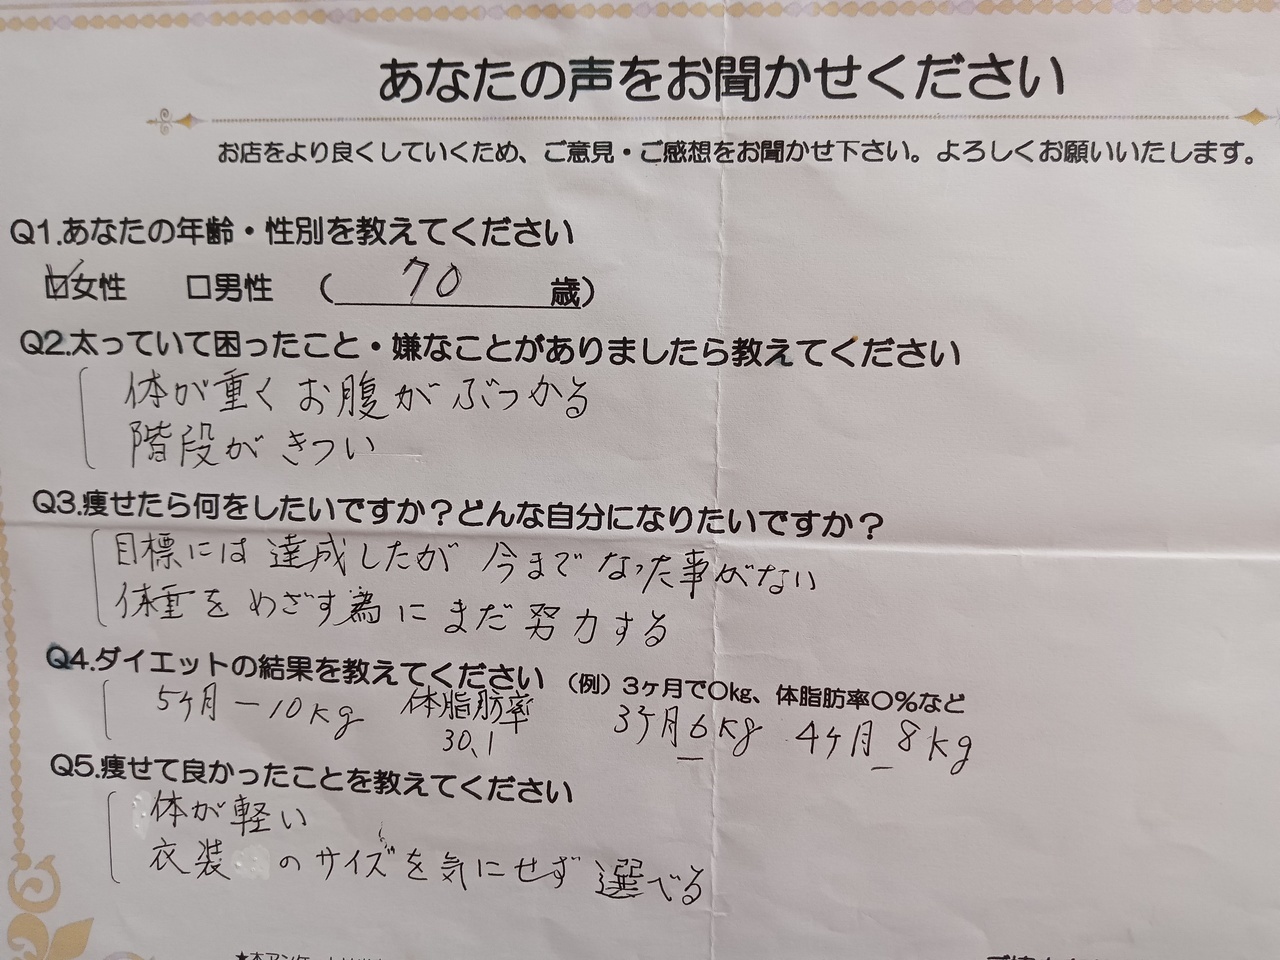 あなたの声をお聞かせください
お店をより良くしていくため、ご意見・ご感想をお聞かせ下さい。よろしくお願いいたします。
Q1.あなたの年齢・性別を教えてください
☑女性 □男性 ( 70 歳)
Q2.太っていて困ったこと・嫌なことがありましたら教えてください
体が重くお腹がぶつかる
階段がきつい
Q3.痩せたら何をしたいですか?どんな自分になりたいですか?
目標には達成したが今までなった事がない
体重をめざす為にまだ努力する
Q4.ダイエットの結果を教えてください (例)3ヶ月で○kg、体脂肪率○%など
5ヶ月 -10kg 体脂肪率 3ケ月6kg 4ヶ月 8kg
30.1
Q5.痩せて良かったことを教えてください
体が軽い
衣装のサイズを気にせず選べる